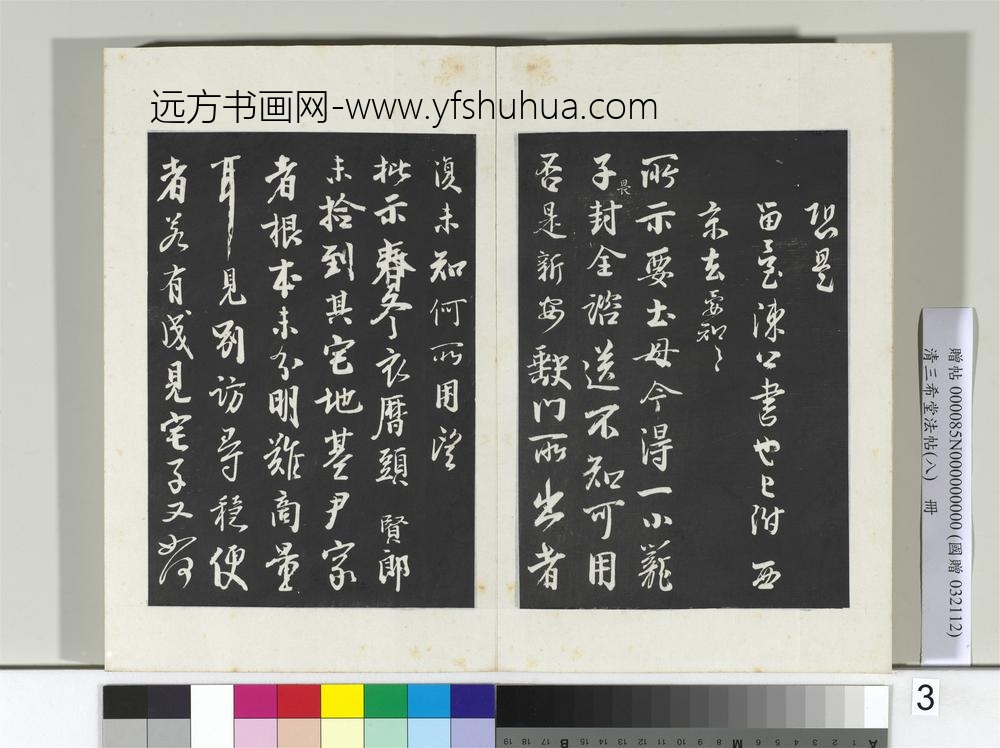 远方书画网-www.yfshuhua.com
恐是
留臺陳公書也已附西
京去要知之
所示要土母今得一小籠
子封全諮送不知可用
畏
否是新安黟門所出者
復未知何所用望
批示春冬衣曆頭賢郎
未拾到其宅地基尹家
者根本未分明難商量
耳見別訪尋穩便
者若有成見宅子又如何
贈帖 000085N000000000 (國贈 032112)
清三希堂法帖(八) 冊
3